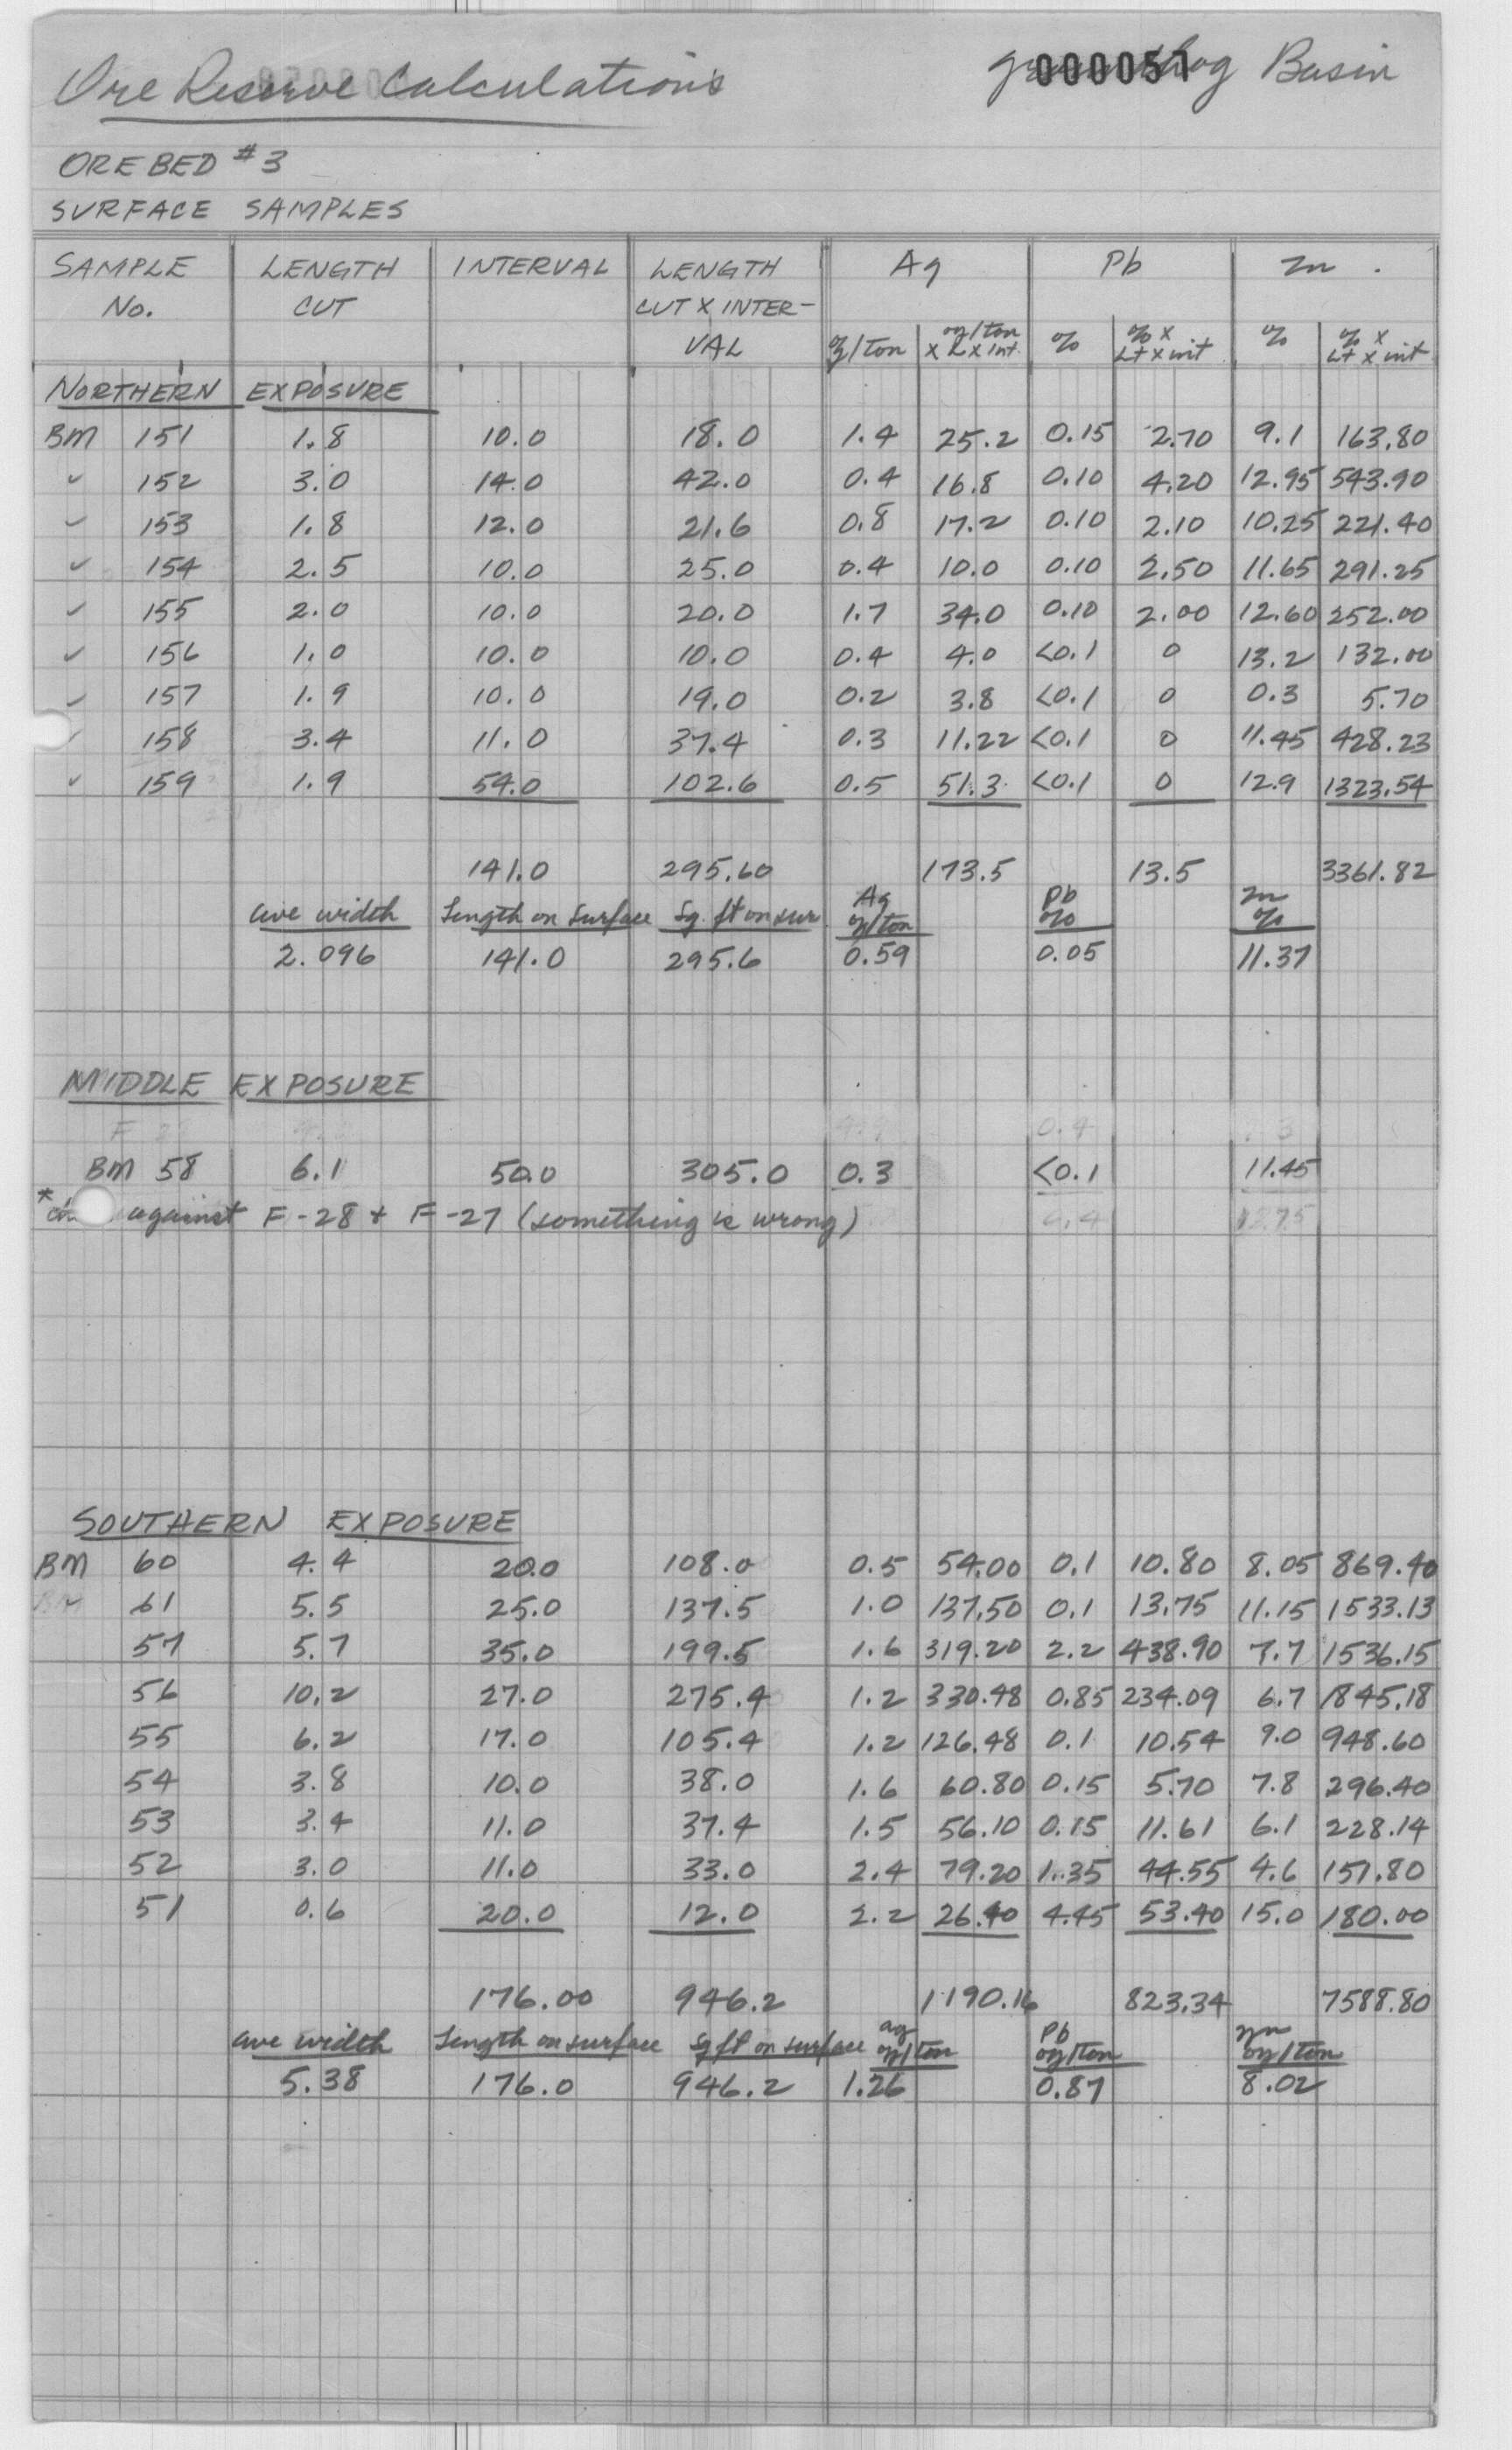 Ore Reserve Calculations
000057
Groundhog Basin
ORE BED #3
SURFACE SAMPLES
SAMPLE LENGTH INTERVAL LENGTH Ag Pb Zn.
No. CUT CUT X INTER-
VAL oz/ton oz/ton x L x Int. % % x Lt x int % % x Lt x int
NORTHERN EXPOSURE
BM 151 1.8 10.0 18.0 1.4 25.2 0.15 2.70 9.1 163.80
✓ 152 3.0 14.0 42.0 0.4 16.8 0.10 4.20 12.95 543.90
✓ 153 1.8 12.0 21.6 0.8 17.2 0.10 2.10 10.25 221.40
✓ 154 2.5 10.0 25.0 0.4 10.0 0.10 2.50 11.65 291.25
✓ 155 2.0 10.0 20.0 1.7 34.0 0.10 2.00 12.60 252.00
✓ 156 1.0 10.0 10.0 0.4 4.0 <0.1 0 13.2 132.00
✓ 157 1.9 10.0 19.0 0.2 3.8 <0.1 0 0.3 5.70
✓ 158 3.4 11.0 37.4 0.3 11.22 <0.1 0 11.45 428.23
✓ 159 1.9 54.0 102.6 0.5 51.3 <0.1 0 12.9 1323.54
141.0 295.60 173.5 13.5 3361.82
ave width Length on Surface Sq. ft on sur Ag oz/ton Pb % Zn %
2.096 141.0 295.6 0.59 0.05 11.37
MIDDLE EXPOSURE
BM 58 6.1 50.0 305.0 0.3 <0.1 11.45
* against F-28 + F-27 (something is wrong)
SOUTHERN EXPOSURE
BM 60 4.4 20.0 108.0 0.5 54.00 0.1 10.80 8.05 869.40
61 5.5 25.0 137.5 1.0 137.50 0.1 13.75 11.15 1533.13
57 5.7 35.0 199.5 1.6 319.20 2.2 438.90 7.7 1536.15
56 10.2 27.0 275.4 1.2 330.48 0.85 234.09 6.7 1845.18
55 6.2 17.0 105.4 1.2 126.48 0.1 10.54 9.0 948.60
54 3.8 10.0 38.0 1.6 60.80 0.15 5.70 7.8 296.40
53 3.4 11.0 37.4 1.5 56.10 0.15 11.61 6.1 228.14
52 3.0 11.0 33.0 2.4 79.20 1.35 44.55 4.6 151.80
51 0.6 20.0 12.0 2.2 26.40 4.45 53.40 15.0 180.00
176.00 946.2 1190.16 823.34 7588.80
ave width Length on surface Sq ft on surface ag oz/ton Pb oz/ton zn oz/ton
5.38 176.0 946.2 1.26 0.87 8.02